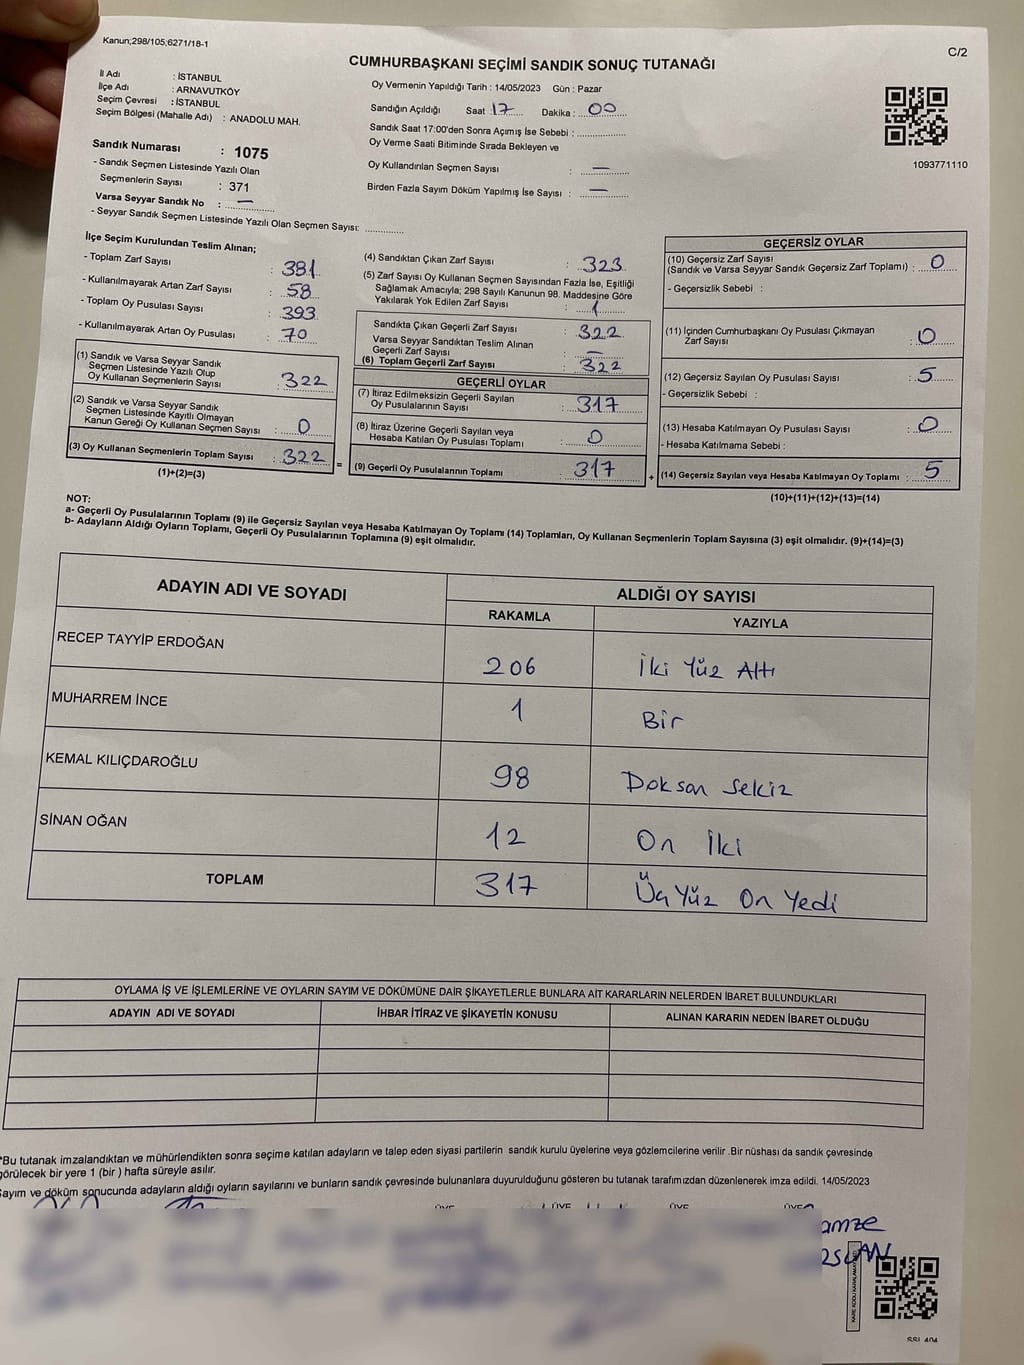 Kanun;298/105;6271/18-1
C/2
CUMHURBAŞKANI SEÇİMİ SANDIK SONUÇ TUTANAĞI
İl Adı : İSTANBUL
İlçe Adı : ARNAVUTKÖY
Seçim Çevresi : İSTANBUL
Seçim Bölgesi (Mahalle Adı) : ANADOLU MAH.
Sandık Numarası : 1075
- Sandık Seçmen Listesinde Yazılı Olan
Seçmenlerin Sayısı : 371
Varsa Seyyar Sandık No : —
- Seyyar Sandık Seçmen Listesinde Yazılı Olan Seçmen Sayısı: ............
Oy Vermenin Yapıldığı Tarih : 14/05/2023 Gün : Pazar
Sandığın Açıldığı Saat 17 Dakika : 00
Sandık Saat 17:00'den Sonra Açımış İse Sebebi : ..............
Oy Verme Saati Bitiminde Sırada Bekleyen ve
Oy Kullandırılan Seçmen Sayısı : —
Birden Fazla Sayım Döküm Yapılmış İse Sayısı : —
1093771110
İlçe Seçim Kurulundan Teslim Alınan;
- Toplam Zarf Sayısı : 381
- Kullanılmayarak Artan Zarf Sayısı : 58
- Toplam Oy Pusulası Sayısı : 393
- Kullanılmayarak Artan Oy Pusulası : 70
(1) Sandık ve Varsa Seyyar Sandık
Seçmen Listesinde Yazılı Olup
Oy Kullanan Seçmenlerin Sayısı : 322
(2) Sandık ve Varsa Seyyar Sandık
Seçmen Listesinde Kayıtlı Olmayan
Kanun Gereği Oy Kullanan Seçmen Sayısı : 0
(3) Oy Kullanan Seçmenlerin Toplam Sayısı : 322
(1)+(2)=(3)
=
(4) Sandıktan Çıkan Zarf Sayısı : 323
(5) Zarf Sayısı Oy Kullanan Seçmen Sayısından Fazla İse, Eşitliği
Sağlamak Amacıyla; 298 Sayılı Kanunun 98. Maddesine Göre
Yakılarak Yok Edilen Zarf Sayısı : 1
Sandıkta Çıkan Geçerli Zarf Sayısı : 322
Varsa Seyyar Sandıktan Teslim Alınan
Geçerli Zarf Sayısı : —
(6) Toplam Geçerli Zarf Sayısı : 322
GEÇERLİ OYLAR
(7) İtiraz Edilmeksizin Geçerli Sayılan
Oy Pusulalarının Sayısı : 317
(8) İtiraz Üzerine Geçerli Sayılan veya
Hesaba Katılan Oy Pusulası Toplamı : 0
(9) Geçerli Oy Pusulalarının Toplamı : 317
+
GEÇERSİZ OYLAR
(10) Geçersiz Zarf Sayısı
(Sandık ve Varsa Seyyar Sandık Geçersiz Zarf Toplamı) : 0
- Geçersizlik Sebebi :
(11) İçinden Cumhurbaşkanı Oy Pusulası Çıkmayan
Zarf Sayısı : 0
(12) Geçersiz Sayılan Oy Pusulası Sayısı : 5
- Geçersizlik Sebebi :
(13) Hesaba Katılmayan Oy Pusulası Sayısı : 0
- Hesaba Katılmama Sebebi :
(14) Geçersiz Sayılan veya Hesaba Katılmayan Oy Toplamı : 5
(10)+(11)+(12)+(13)=(14)
NOT:
a- Geçerli Oy Pusulalarının Toplamı (9) ile Geçersiz Sayılan veya Hesaba Katılmayan Oy Toplamı (14) Toplamları, Oy Kullanan Seçmenlerin Toplam Sayısına (3) eşit olmalıdır. (9)+(14)=(3)
b- Adayların Aldığı Oyların Toplamı, Geçerli Oy Pusulalarının Toplamına (9) eşit olmalıdır.
ADAYIN ADI VE SOYADI ALDIĞI OY SAYISI
RAKAMLA YAZIYLA
RECEP TAYYİP ERDOĞAN 206 İki Yüz Altı
MUHARREM İNCE 1 Bir
KEMAL KILIÇDAROĞLU 98 Doksan Sekiz
SİNAN OĞAN 12 On İki
TOPLAM 317 Üç Yüz On Yedi
OYLAMA İŞ VE İŞLEMLERİNE VE OYLARIN SAYIM VE DÖKÜMÜNE DAİR ŞİKAYETLERLE BUNLARA AİT KARARLARIN NELERDEN İBARET BULUNDUKLARI
ADAYIN ADI VE SOYADI İHBAR İTİRAZ VE ŞİKAYETİN KONUSU ALINAN KARARIN NEDEN İBARET OLDUĞU
*Bu tutanak imzalandıktan ve mühürlendikten sonra seçime katılan adayların ve talep eden siyasi partilerin sandık kurulu üyelerine veya gözlemcilerine verilir .Bir nüshası da sandık çevresinde
görülecek bir yere 1 (bir ) hafta süreyle asılır.
Sayım ve döküm sonucunda adayların aldığı oyların sayılarını ve bunların sandık çevresinde bulunanlara duyurulduğunu gösteren bu tutanak tarafımızdan düzenlenerek imza edildi. 14/05/2023
ÜYE ÜYE ÜYE ÜYE